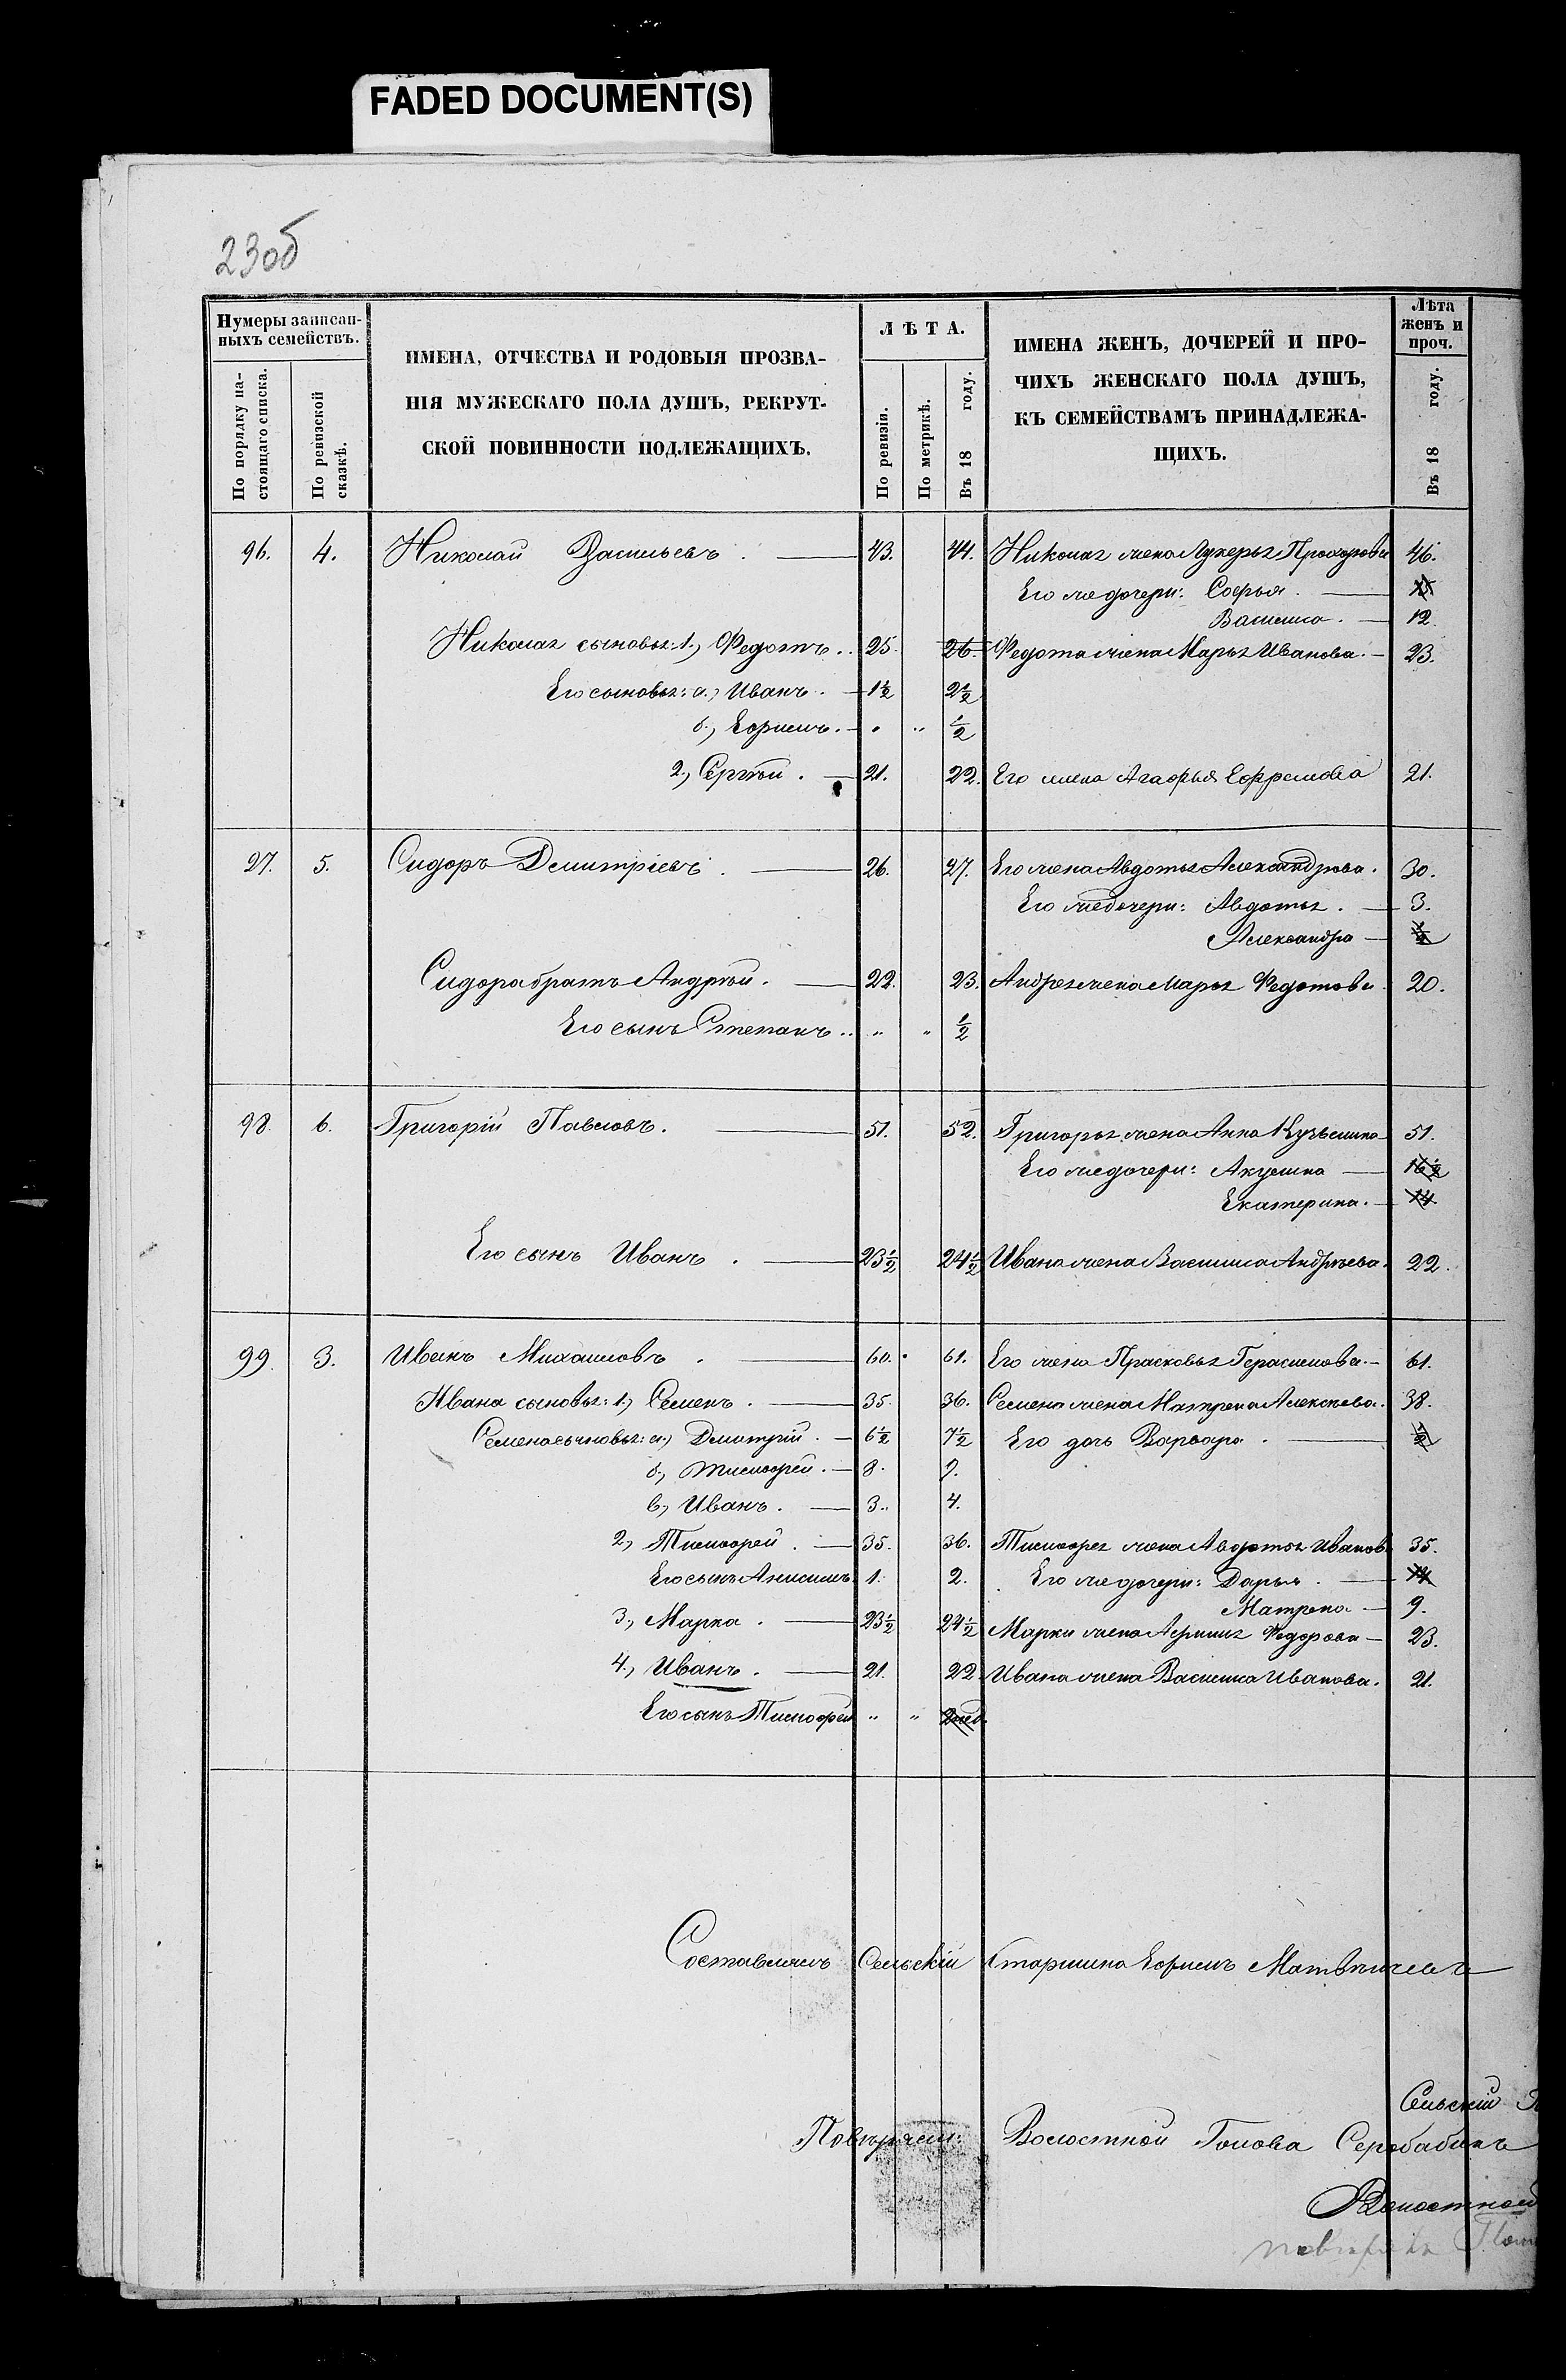 FADED DOCUMENT(S)
23об
Нумеры записан-
ныхъ семействъ.
По порядку на-
стоящаго списка.
По ревизской
сказкѣ.
ИМЕНА, ОТЧЕСТВА И РОДОВЫЯ ПРОЗВА-
НІЯ МУЖЕСКАГО ПОЛА ДУШЪ, РЕКРУТ-
СКОЙ ПОВИННОСТИ ПОДЛЕЖАЩИХЪ.
ЛѢТА.
По ревизіи.
По метрикѣ.
Въ 18 году.
ИМЕНА ЖЕНЪ, ДОЧЕРЕЙ И ПРО-
ЧИХЪ ЖЕНСКАГО ПОЛА ДУШЪ,
КЪ СЕМЕЙСТВАМЪ ПРИНАДЛЕЖА-
ЩИХЪ.
Лѣта
женъ и
проч.
Въ 18 году.
96. 4. Николай Васильевъ. 43. 44. Николая жена Лукерья Прохорова 46.
Его же дочери: Софья.
Василиса. 12.
Николая сыновья: 1.) Федотъ. 25. 26. Федота жена Марья Иванова. 23.
Его сыновья: а.) Иванъ. 1½ 2½
б.) Ефимъ. " " ½
2.) Сергѣй. 21. 22. Его жена Агафья Ефремова 21.
97. 5. Сидоръ Дмитріевъ. 26. 27. Его жена Авдотья Александрова. 30.
Его же дочери: Авдотья. 3.
Александра ½
Сидора братъ Андрѣй. 22. 23. Андрея жена Марья Федотова 20.
Его сынъ Степанъ. " " ½
98. 6. Григорій Павловъ. 51. 52. Григорья жена Анна Кузьмина 51.
Его же дочери: Акулина 16½
Екатерина. 14.
Его сынъ Иванъ. 23½ 24½ Ивана жена Василиса Андрѣева. 22.
99. 3. Иванъ Михаиловъ. 60. 61. Его жена Прасковья Герасимова. 61.
Ивана сыновья: 1.) Семенъ. 35. 36. Семена жена Матрена Алексѣева. 38.
Семена сыновья: а.) Дмитрій. 6½ 7½ Его дочь Варвара. ½
б.) Тимофей. 8. 9.
в.) Иванъ. 3. 4.
2.) Тимофей. 35. 36. Тимофея жена Авдотья Иванов. 35.
Его сынъ Анисимъ. 1. 2. Его же дочери: Дарья. 14
Матрена 9.
3.) Марка. 23½ 24½ Марки жена Федорова 23.
4.) Иванъ. 21. 22. Ивана жена Василиса Иванова. 21.
Его сынъ Тимофей " " 2 нед.
Составлялъ Сельскій Старшина Ефимъ
Сельскій
Повѣряли: Волостной Голова Серебабинъ
Волостной